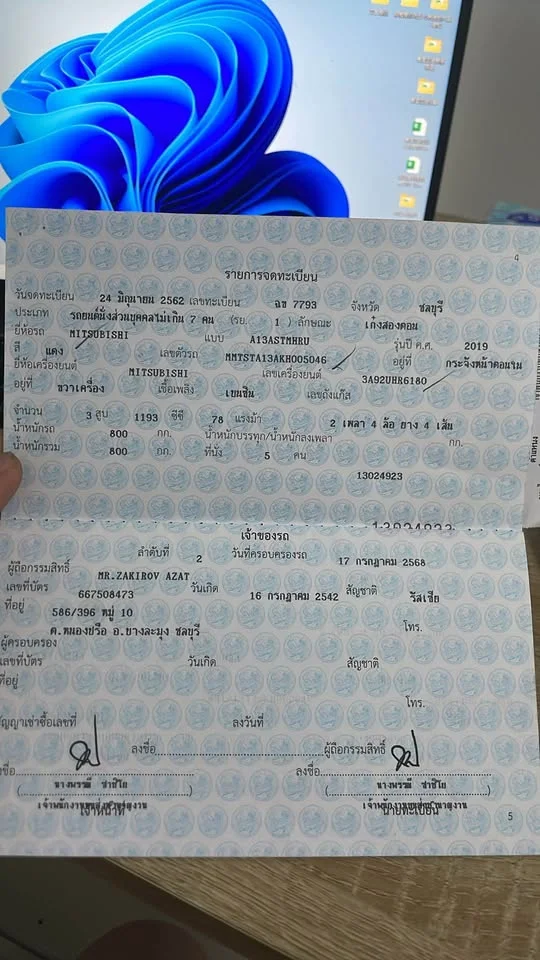 4
รายการจดทะเบียน
วันจดทะเบียน 24 มิถุนายน 2562 เลขทะเบียน ฉข 7793 จังหวัด ชลบุรี
ประเภท รถยนต์นั่งส่วนบุคคลไม่เกิน 7 คน (รย. 1 ) ลักษณะ เก๋งสองตอน
ยี่ห้อรถ MITSUBISHI แบบ A13ASTMHRU รุ่นปี ค.ศ. 2019
สี แดง เลขตัวรถ MMTSTA13AKH005046 อยู่ที่ กระจังหน้าตอนริม
ยี่ห้อเครื่องยนต์ MITSUBISHI เลขเครื่องยนต์ 3A92UHR6180
อยู่ที่ ขวาเครื่อง เชื้อเพลิง เบนซิน เลขถังแก๊ส
จำนวน 3 สูบ 1193 ซีซี 78 แรงม้า 2 เพลา 4 ล้อ ยาง 4 เส้น
น้ำหนักรถ 800 กก. น้ำหนักบรรทุก/น้ำหนักลงเพลา กก.
น้ำหนักรวม 800 กก. ที่นั่ง 5 คน
13024923
เจ้าของรถ
ลำดับที่ 2 วันที่ครอบครองรถ 17 กรกฎาคม 2568
ผู้ถือกรรมสิทธิ์ MR.ZAKIROV AZAT
เลขที่บัตร 667508473 วันเกิด 16 กรกฎาคม 2542 สัญชาติ รัสเซีย
ที่อยู่ 586/396 หมู่ 10 โทร.
ต.หนองปรือ อ.บางละมุง ชลบุรี
ผู้ครอบครอง
เลขที่บัตร วันเกิด สัญชาติ
ที่อยู่
โทร.
สัญญาเช่าซื้อเลขที่ ลงวันที่
ลงชื่อ ผู้ถือกรรมสิทธิ์
ลงชื่อ ลงชื่อ
เจ้าหน้าที่ นายทะเบียน
5